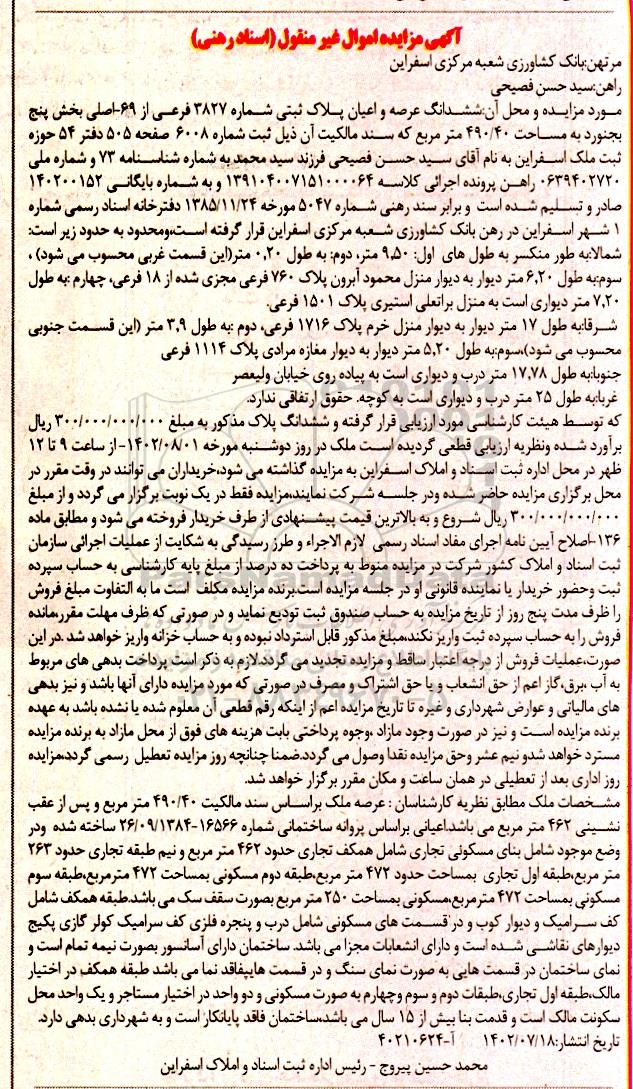 آگهی مزایده اموال غیر منقول (اسناد رهنی)
مرتهن:بانک کشاورزی شعبه مرکزی اسفراین
راهن:سید حسن فصیحی
مورد مزایده و محل آن:ششدانگ عرصه و اعیان پلاک ثبتی شماره ۳۸۲۷ فرعی از ۶۹-اصلی بخش پنج
بجنورد به مساحت ۴۹۰/۴۰ متر مربع که سند مالکیت آن ذیل ثبت شماره ۶۰۰۸ صفحه ۵۰۵ دفتر ۵۴ حوزه
ثبت ملک اسفراین به نام آقای سید حسن فصیحی فرزند سید محمد به شماره شناسنامه ۷۳ و شماره ملی
۰۶۳۹۴۰۲۷۲۰ راهن پرونده اجرائی کلاسه ۱۳۹۱۰۴۰۰۷۱۵۱۰۰۰۰۶۴ و به شماره بایگانی ۱۴۰۲۰۰۱۵۲
صادر و تسلیم شده است و برابر سند رهنی شماره ۵۰۴۷ مورخه ۱۳۸۵/۱۱/۲۴ دفترخانه اسناد رسمی شماره
۱ شهر اسفراین در رهن بانک کشاورزی شعبه مرکزی اسفراین قرار گرفته است،ومحدود به حدود زیر است:
شمالا:به طور منکسر به طول های اول: ۹,۵۰ متر، دوم: به طول ۰,۲۰ متر(این قسمت غربی محسوب می شود) ،
سوم:به طول ۶,۲۰ متر دیوار به دیوار منزل محمود آبرون پلاک ۷۶۰ فرعی مجزی شده از ۱۸ فرعی، چهارم :به طول
۷,۲۰ متر دیواری است به منزل براتعلی استیری پلاک ۱۵۰۱ فرعی.
شرقا:به طول ۱۷ متر دیوار به دیوار منزل خرم پلاک ۱۷۱۶ فرعی، دوم :به طول ۳,۹ متر (این قسمت جنوبی
محسوب می شود)،سوم:به طول ۵,۲۰ متر دیوار به دیوار مغازه مرادی پلاک ۱۱۱۴ فرعی
جنوبا:به طول ۱۷,۷۸ متر درب و دیواری است به پیاده روی خیابان ولیعصر
غربا:به طول ۲۵ متر درب و دیواری است به کوچه. حقوق ارتفاقی ندارد.
که توسط هیئت کارشناسی مورد ارزیابی قرار گرفته و ششدانگ پلاک مذکور به مبلغ ۳۰۰/۰۰۰/۰۰۰/۰۰۰ ریال
برآورد شده ونظریه ارزیابی قطعی گردیده است ملک در روز دوشنبه مورخه ۱۴۰۲/۰۸/۰۱-از ساعت ۹ تا ۱۲
ظهر در محل اداره ثبت اسناد و املاک اسفراین به مزایده گذاشته می شود،خریداران می توانند در وقت مقرر در
محل برگزاری مزایده حاضر شده ودر جلسه شرکت نمایند،مزایده فقط در یک نوبت برگزار می گردد و از مبلغ
۳۰۰/۰۰۰/۰۰۰/۰۰۰ ریال شروع و به بالاترین قیمت پیشنهادی از طرف خریدار فروخته می شود و مطابق ماده
۱۳۶-اصلاح آیین نامه اجرای مفاد اسناد رسمی لازم الاجراء و طرز رسیدگی به شکایت از عملیات اجرائی سازمان
ثبت اسناد و املاک کشور شرکت در مزایده منوط به پرداخت ده درصد از مبلغ پایه کارشناسی به حساب سپرده
ثبت وحضور خریدار یا نماینده قانونی او در جلسه مزایده است.برنده مزایده مکلف است ما به التفاوت مبلغ فروش
را ظرف مدت پنج روز از تاریخ مزایده به حساب صندوق ثبت تودیع نماید و در صورتی که ظرف مهلت مقرر،مانده
فروش را به حساب سپرده ثبت واریز نکند،مبلغ مذکور قابل استرداد نبوده و به حساب خزانه واریز خواهد شد .در این
صورت،عملیات فروش از درجه اعتبار ساقط و مزایده تجدید می گردد.لازم به ذکر است پرداخت بدهی های مربوط
به آب ،برق،گاز اعم از حق انشعاب و یا حق اشتراک و مصرف در صورتی که مورد مزایده دارای آنها باشد و نیز بدهی
های مالیاتی و عوارض شهرداری و غیره تا تاریخ مزایده اعم از اینکه رقم قطعی آن معلوم شده یا نشده باشد به عهده
برنده مزایده است و نیز در صورت وجود مازاد ،وجوه پرداختی بابت هزینه های فوق از محل مازاد به برنده مزایده
مسترد خواهد شدو نیم عشر وحق مزایده نقدا وصول می گردد.ضمنا چنانچه روز مزایده تعطیل رسمی گردد،مزایده
روز اداری بعد از تعطیلی در همان ساعت و مکان مقرر برگزار خواهد شد.
مشخصات ملک مطابق نظریه کارشناسان : عرصه ملک براساس سند مالکیت ۴۹۰/۴۰ متر مربع و پس از عقب
نشینی ۴۶۲ متر مربع می باشد.اعیانی براساس پروانه ساختمانی شماره ۱۶۵۶۶-۲۶/۰۹/۱۳۸۴ ساخته شده ودر
وضع موجود شامل بنای مسکونی تجاری شامل همکف تجاری حدود ۴۶۲ متر مربع و نیم طبقه تجاری حدود ۲۶۳
متر مربع،طبقه اول تجاری بمساحت حدود ۴۷۲ متر مربع،طبقه دوم مسکونی بمساحت ۴۷۲ مترمربع،طبقه سوم
مسکونی بمساحت ۴۷۲ مترمربع،مسکونی بمساحت ۲۵۰ متر مربع بصورت سقف سک می باشد.طبقه همکف شامل
کف سرامیک و دیوار کوب و در قسمت های مسکونی شامل درب و پنجره فلزی کف سرامیک کولر گازی پکیج
دیوارهای نقاشی شده است و دارای انشعابات مجزا می باشد. ساختمان دارای آسانسور بصورت نیمه تمام است و
نمای ساختمان در قسمت هایی به صورت نمای سنگ و در قسمت هاییفاقد نما می باشد طبقه همکف در اختیار
مالک،طبقه اول تجاری،طبقات دوم و سوم وچهارم به صورت مسکونی و دو واحد در اختیار مستاجر و یک واحد محل
سکونت مالک است و قدمت بنا بیش از ۱۵ سال می باشد،ساختمان فاقد پایانکار است و به شهرداری بدهی دارد.
تاریخ انتشار:۱۴۰۲/۰۷/۱۸ آ-۴۰۲۱۰۶۲۴
محمد حسین پیروج - رئیس اداره ثبت اسناد و املاک اسفراین